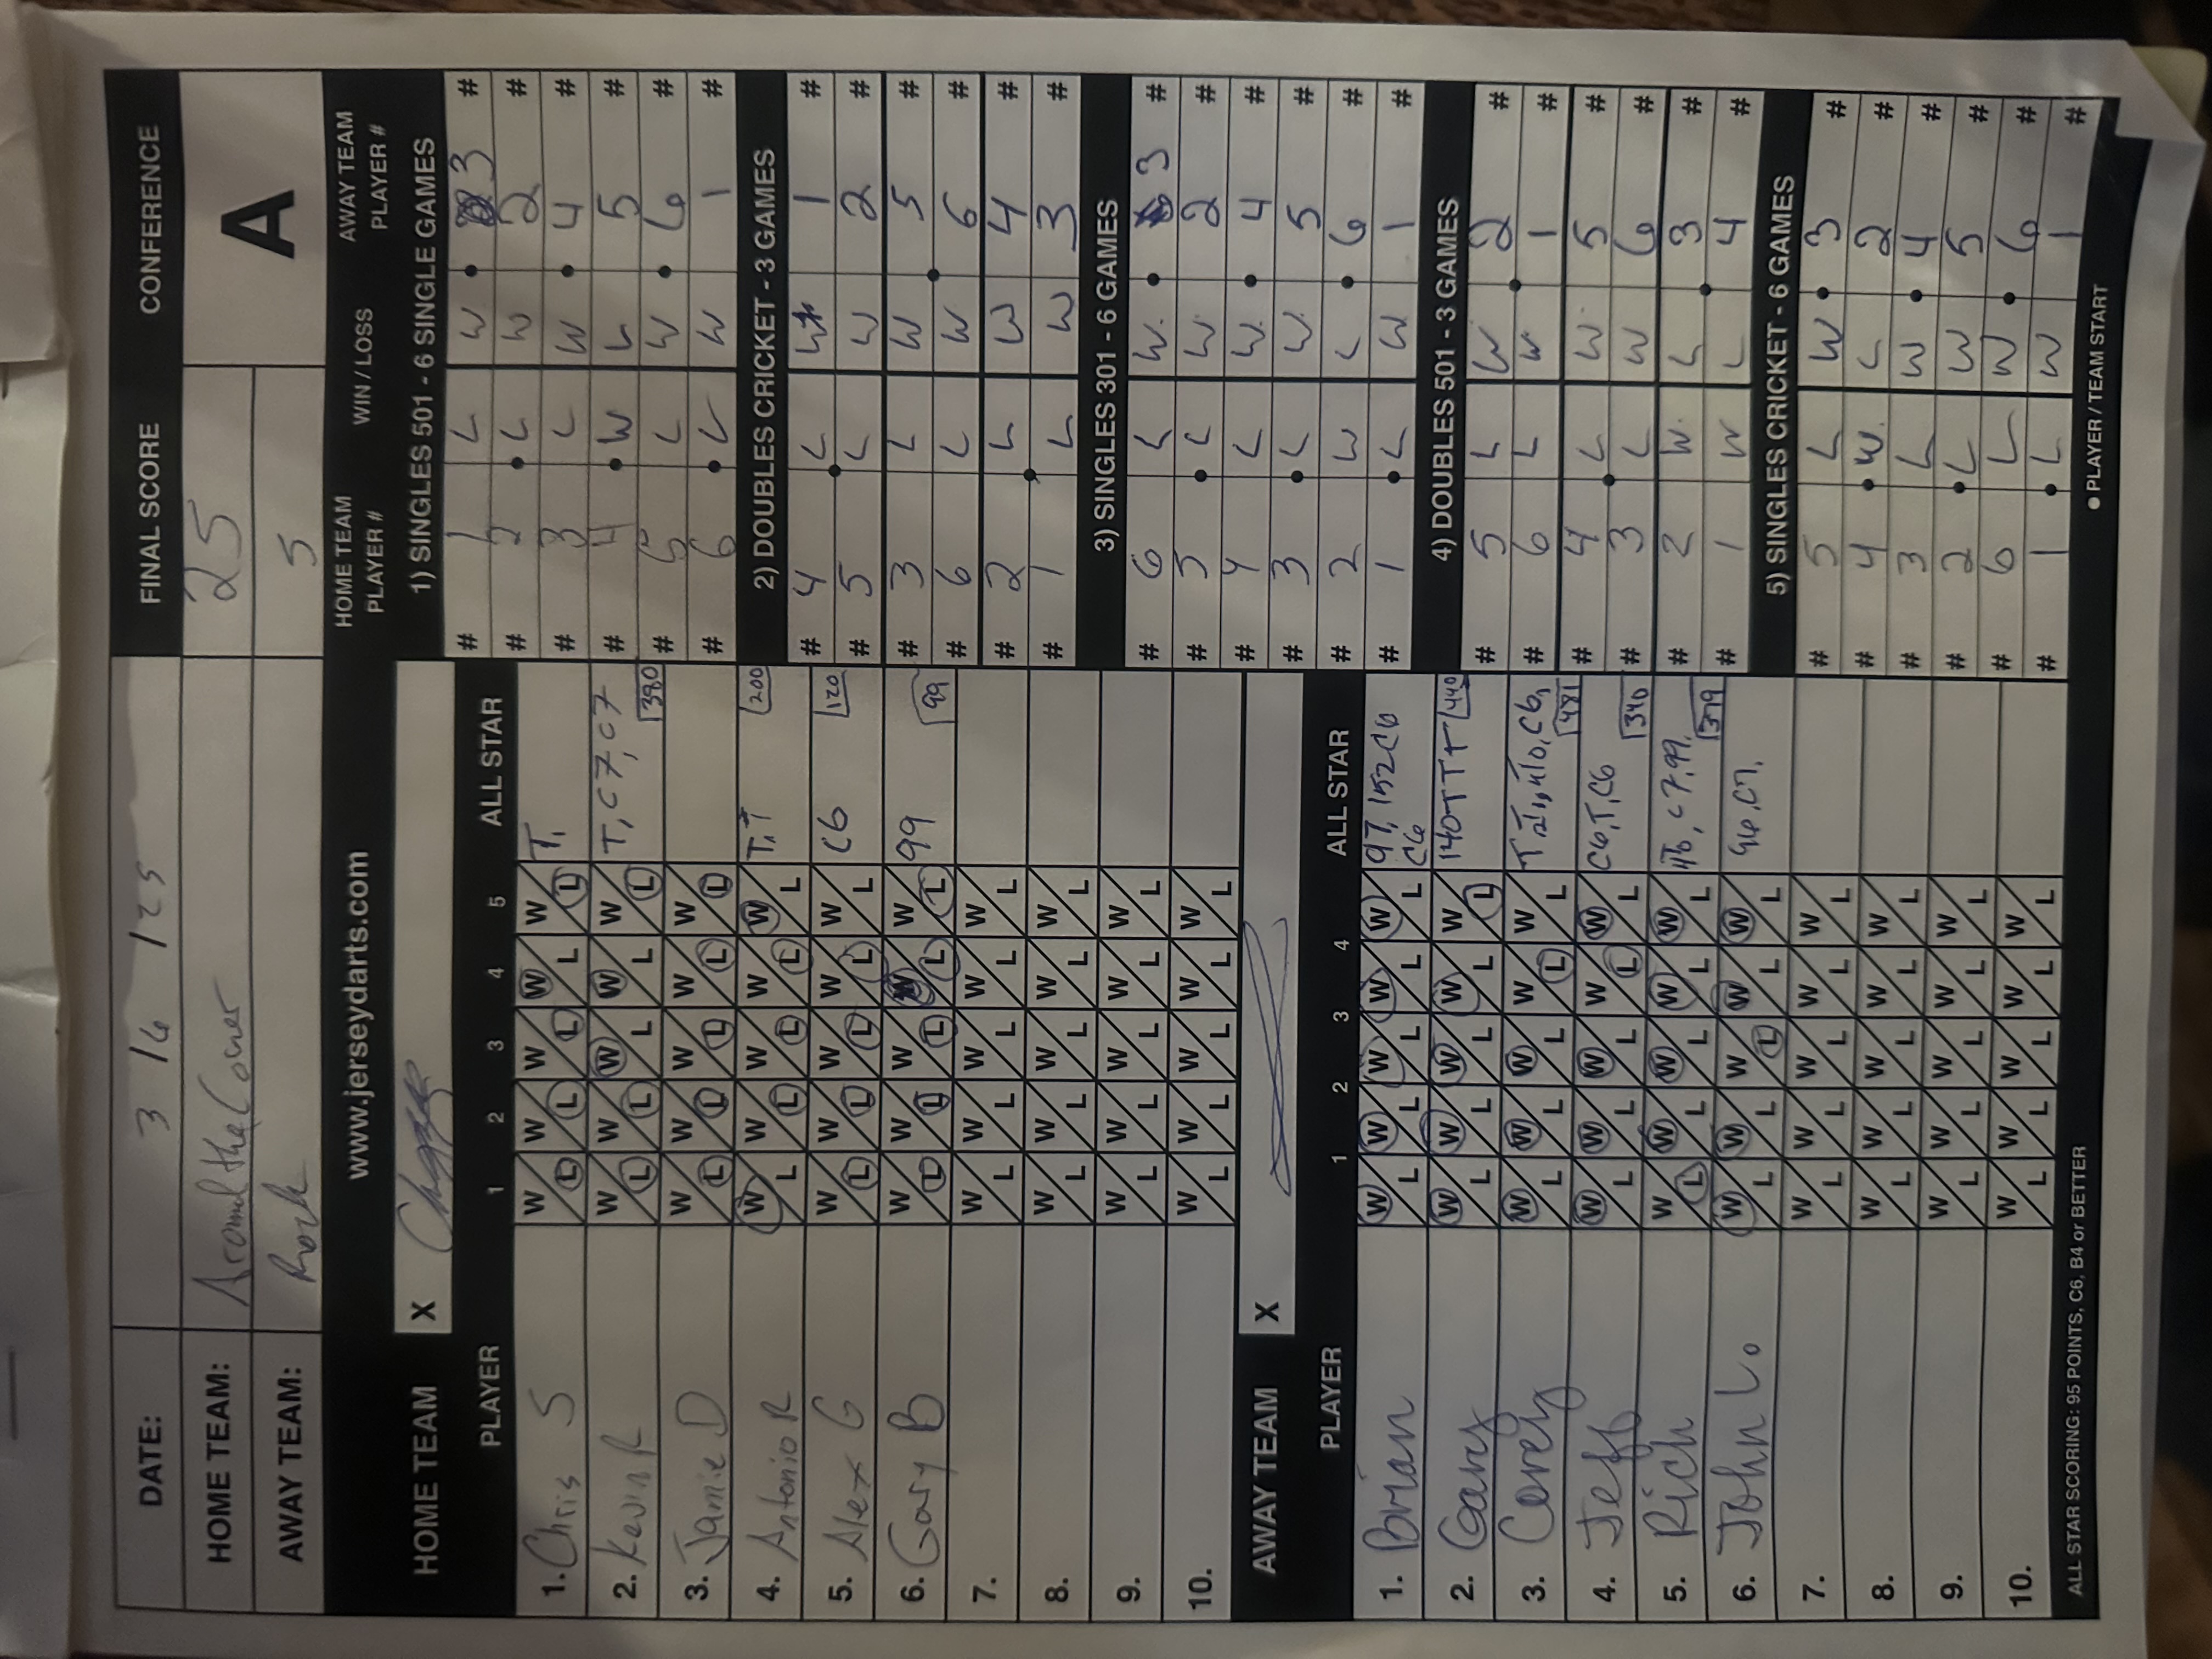 DATE: 3 / 6 / 25 FINAL SCORE CONFERENCE
HOME TEAM: Around the Corner 25 A
AWAY TEAM: Rock 5
www.jerseydarts.com
HOME TEAM PLAYER # WIN / LOSS AWAY TEAM PLAYER #
HOME TEAM X
PLAYER 1 2 3 4 5 ALL STAR
1. Chris S W L W L W L W L W L T,
2. Kevin R W L W L W L W L W L T, C7, C7 380
3. Jamie D W L W L W L W L W L
4. Antonio R W L W L W L W L W L T, T 200
5. Alex G W L W L W L W L W L C6 120
6. Gary B W L W L W L W L W L 99 99
7. W L W L W L W L W L
8. W L W L W L W L W L
9. W L W L W L W L W L
10. W L W L W L W L W L
AWAY TEAM X
PLAYER 1 2 3 4 5 ALL STAR
1. Brian W L W L W L W L W L 97, 152 C6 C6
2. Gary W L W L W L W L W L 140 T T T 440
3. Corey W L W L W L W L W L C6, 481
4. Jeff W L W L W L W L W L C6, T, C6 340
5. Rich W L W L W L W L W L C7, 99, 379
6. John Lo W L W L W L W L W L C7,
7. W L W L W L W L W L
8. W L W L W L W L W L
9. W L W L W L W L W L
10. W L W L W L W L W L
ALL STAR SCORING: 95 POINTS, C6, B4 or BETTER
1) SINGLES 501 - 6 SINGLE GAMES
# 1 L W 3 #
# 2 L W 2 #
# 3 L W 4 #
# 4 W L 5 #
# 5 L W 6 #
# 6 L W 1 #
2) DOUBLES CRICKET - 3 GAMES
# 4 L W 1 #
# 5 L W 2 #
# 3 L W 5 #
# 6 L W 6 #
# 2 L W 4 #
# 1 L W 3 #
3) SINGLES 301 - 6 GAMES
# 6 L W 3 #
# 5 L W 2 #
# 4 L W 4 #
# 3 L W 5 #
# 2 W L 6 #
# 1 L W 1 #
4) DOUBLES 501 - 3 GAMES
# 5 L W 2 #
# 6 L W 1 #
# 4 L W 5 #
# 3 L W 6 #
# 2 W L 3 #
# 1 W L 4 #
5) SINGLES CRICKET - 6 GAMES
# 5 L W 3 #
# 4 W L 2 #
# 3 L W 4 #
# 2 L W 5 #
# 6 L W 6 #
# 1 L W 1 #
● PLAYER / TEAM START